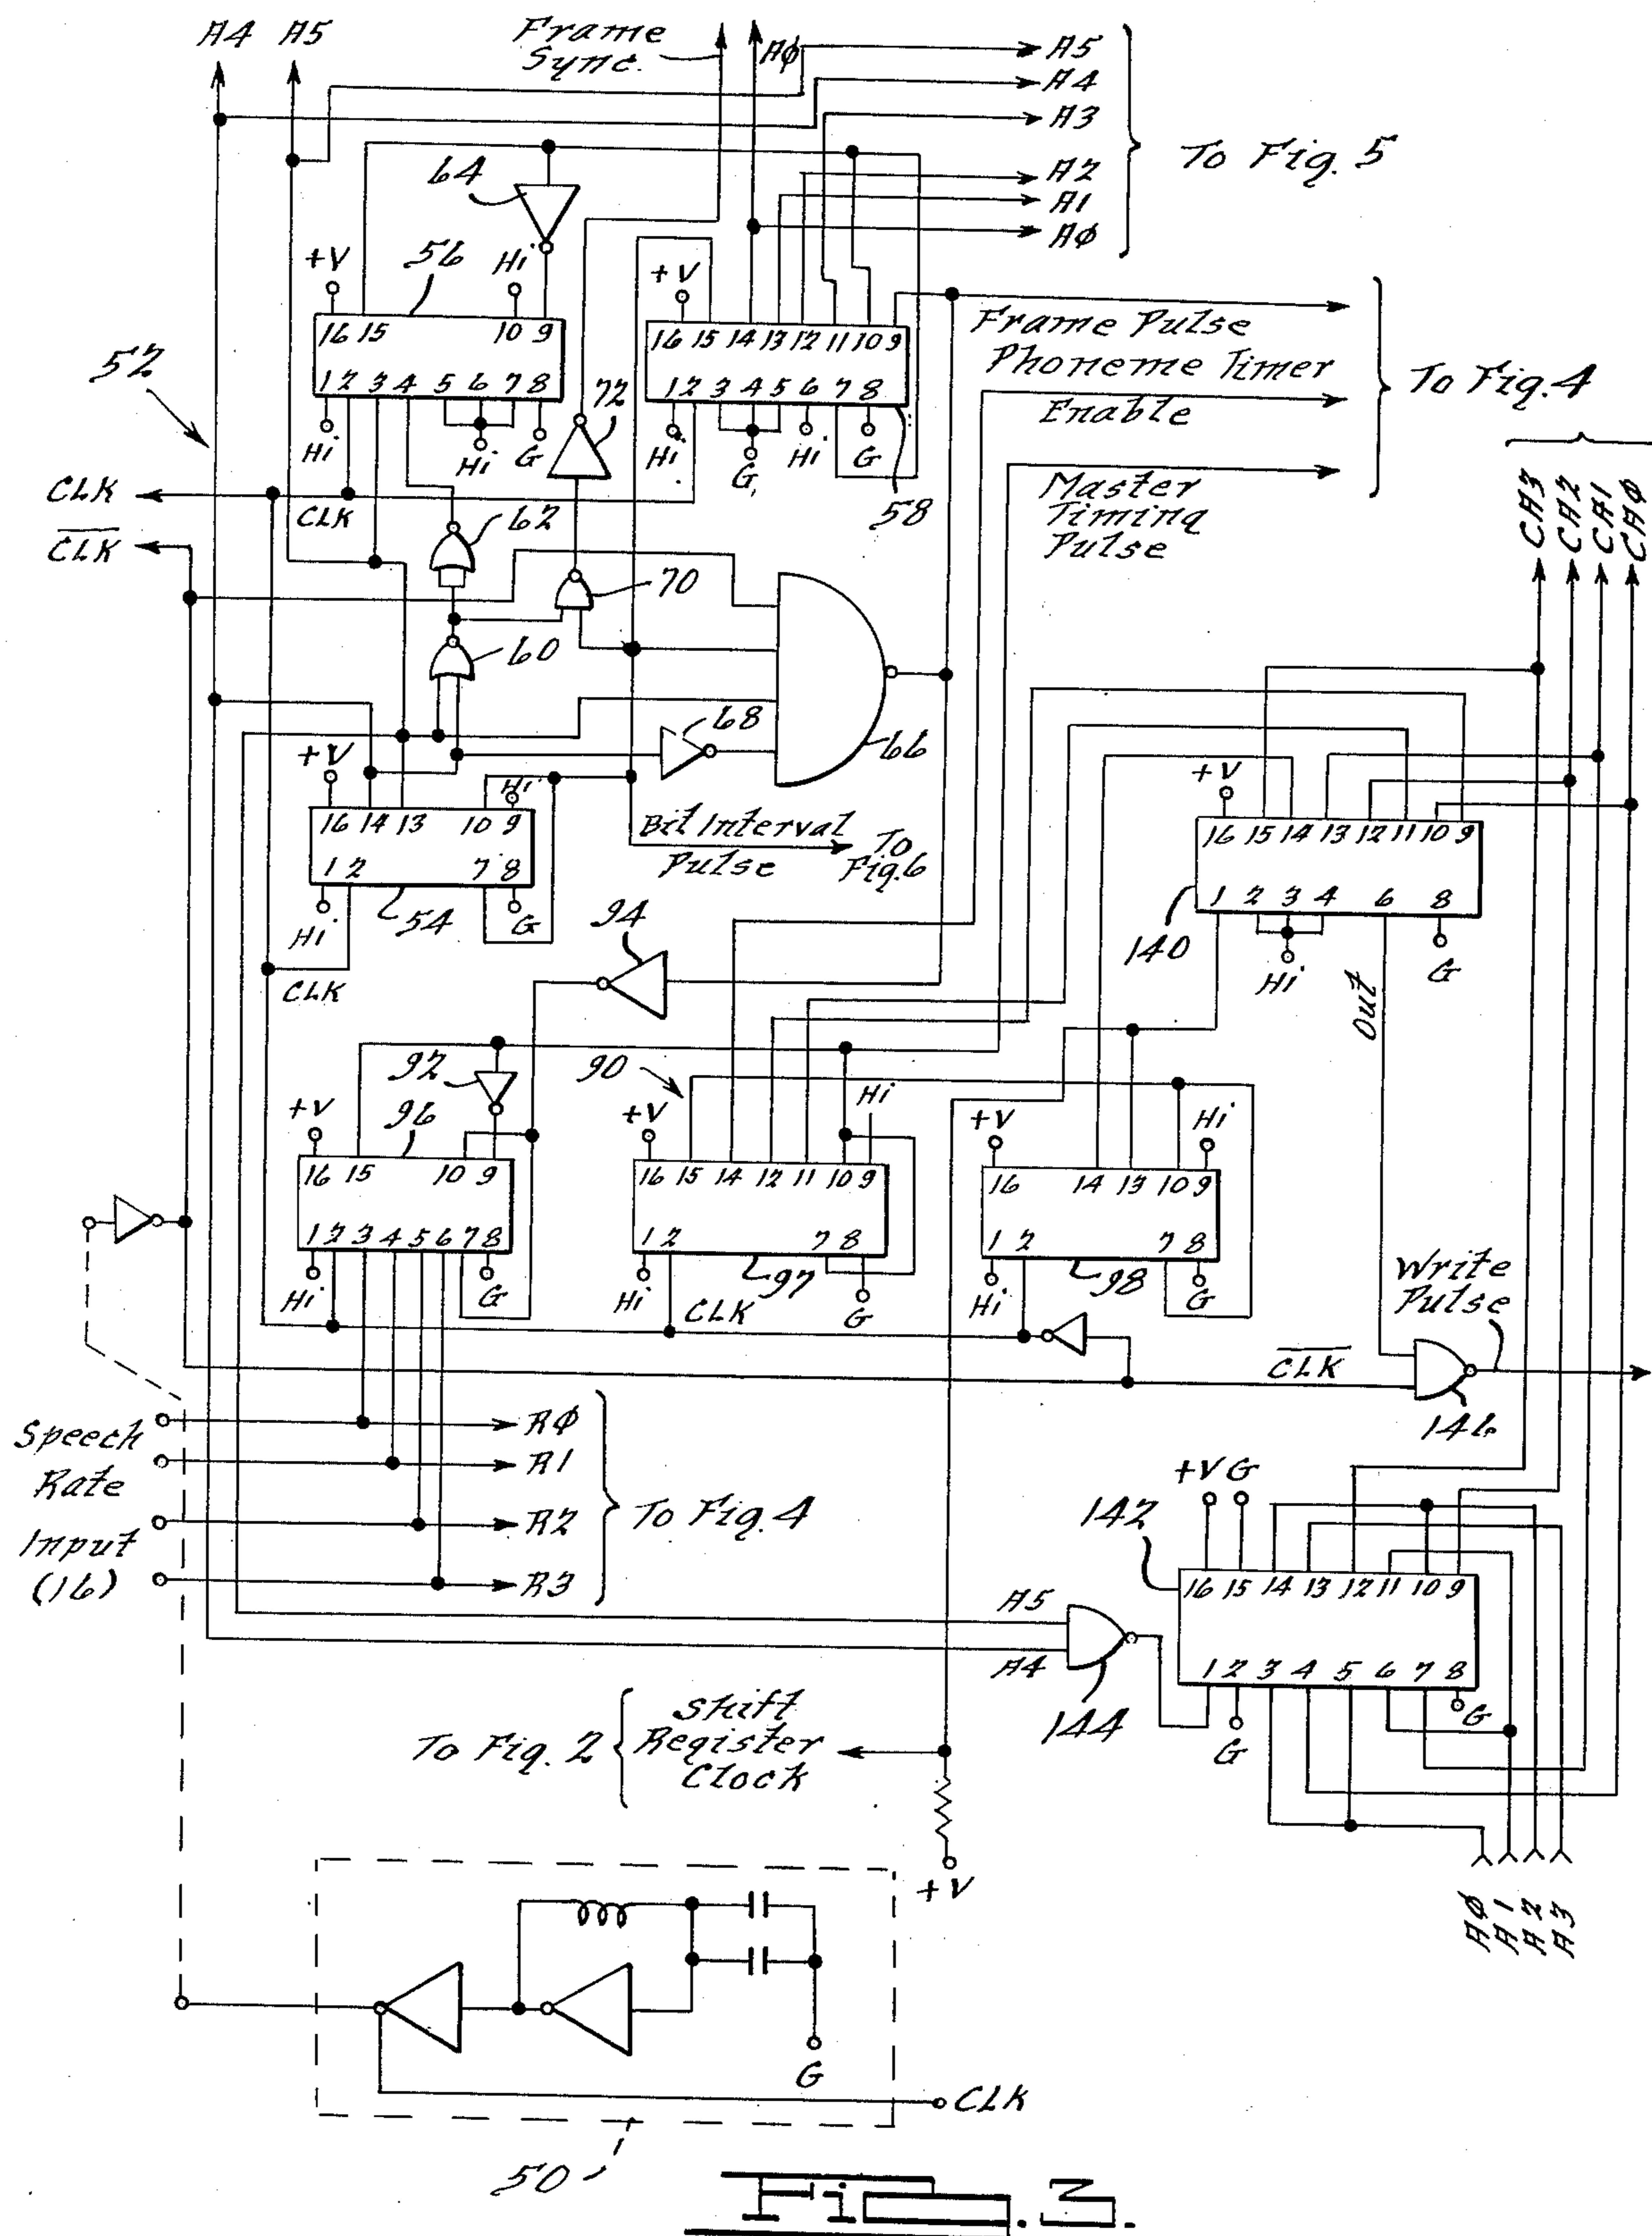 A4 A5
Frame
Sync.
Aφ
A5
A4
A3
A2
A1
Aφ
To Fig. 5
64
+V
56
Hi
16 15 10 9
1 2 3 4 5 6 7 8
Hi
Hi
G
52
72
+V
16 15 14 13 12 11 10 9
1 2 3 4 5 6 7 8
Hi
G
Hi
G
58
Frame Pulse
Phoneme Timer
Enable
Master
Timing
Pulse
To Fig. 4
CLK
CLK
C̅L̅K̅
62
70
60
68
66
CA3
CA2
CA1
CAφ
+V
Hi
16 14 13 10 9
1 2 7 8
Hi
54
G
CLK
Bit Interval
Pulse
To
Fig. 6
94
+V
16 15 14 13 12 11 10 9
1 2 3 4 6 8
140
Hi
G
Out
92
90
+V
96
16 15 10 9
1 2 3 4 5 6 7 8
Hi
G
+V
Hi
16 15 14 12 11 10 9
1 2 7 8
Hi
CLK
97
G
+V
Hi
16 14 13 10 9
1 2 7 8
Hi
98
G
Write
Pulse
C̅L̅K̅
146
Speech
Rate
Input
(16)
Rφ
R1
R2
R3
To Fig. 4
+V G
142
16 15 14 13 12 11 10 9
1 2 3 4 5 6 7 8
G
G
A5
A4
144
To Fig. 2
Shift
Register
Clock
+V
Aφ
A1
A2
A3
G
CLK
50
Fig. 3.